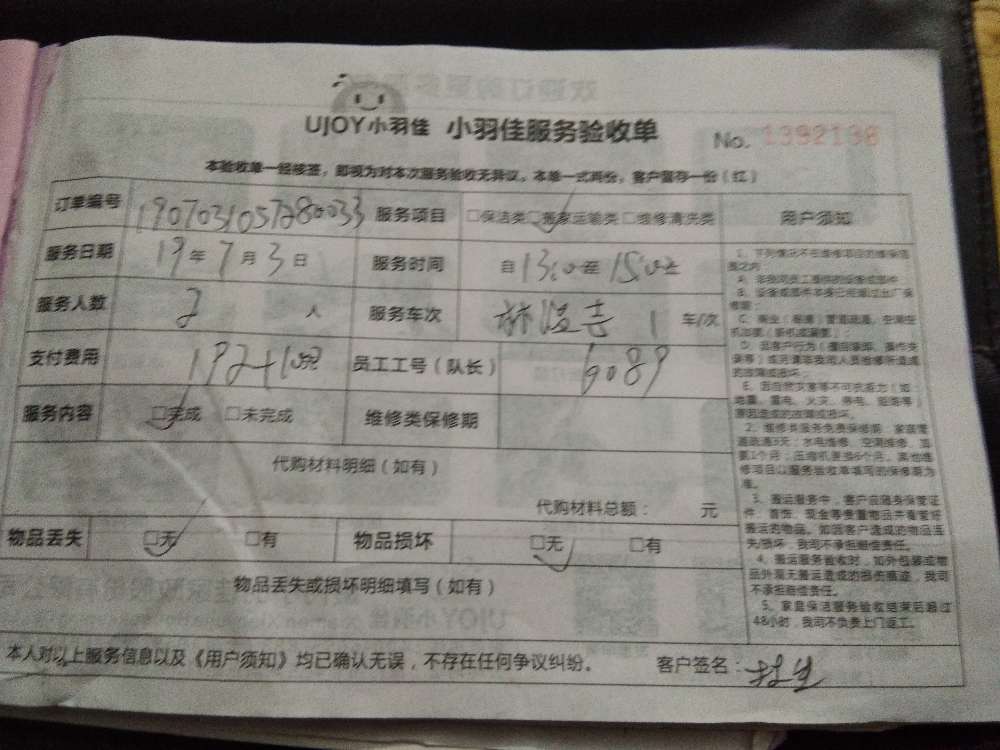 UJOY小羽佳 小羽佳服务验收单 No. 1392198
本验收单一经接签，即视为对本次服务验收无异议。本单一式两份，客户留存一份（红）
订单编号 1907031057280033 服务项目 □保洁类 □搬家运输类 □维修清洗类 用户须知
服务日期 19年7月3日 服务时间 自13:00至15:02止
服务人数 2人 服务车次 1车/次
支付费用 员工工号（队长） 6089
服务内容 □完成 □未完成 维修类保修期
代购材料明细（如有）
代购材料总额： 元
物品丢失 □无 □有 物品损坏 □无 □有
物品丢失或损坏明细填写（如有）
1、下列情况不在维修项目的维保范围之内
E、因自然灾害等不可抗拒力（如地震、雷电、火灾、停电、
原因造成的故障或损坏。
2、维修类服务免费保修期：家庭管道疏通3天；水电维修、空调维修、加氟1个月；压缩机更换6个月。其他维修项目以服务验收单填写的保修期为准。
3、搬运服务中，客户应随身保管证件、首饰、现金等贵重物品并看管好搬运的物品。如因客户造成的物品丢失/损坏，我司不承担赔偿责任。
4、搬运服务验收时，如外包装或物品外观无搬运造成的损伤痕迹，我司不承担赔偿责任。
5、家庭保洁服务验收结束后超过48小时，我司不负责上门返工。
本人对以上服务信息以及《用户须知》均已确认无误，不存在任何争议纠纷。 客户签名：